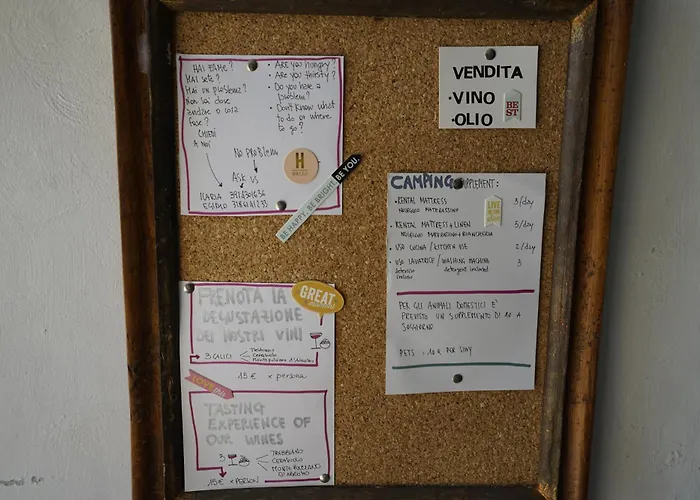 HAI FAME?
HAI SETE?
HAI UN PROBLEMA?
NON SAI DOVE
ANDARE O COSA
FARE?
CHIEDI
A NOI
• ARE YOU HUNGRY?
• ARE YOU THIRSTY?
• DO YOU HAVE A
PROBLEM?
• DON'T KNOW WHAT
TO DO OR WHERE
TO GO?
NO PROBLEM
ASK US
ILARIA
EGIDIO
H
BE HAPPY. BE BRIGHT. BE YOU.
VENDITA
• VINO
• OLIO
BE
ST
CAMPING SUPPLEMENT:
• RENTAL MATTRESS 3/day
NOLEGGIO MATERASSINO
• RENTAL MATTRESS + LINEN 5/day
NOLEGGIO MATERASSINO + BIANCHERIA
• USO CUCINA / KITCHEN USE 2/day
• USO LAVATRICE / WASHING MACHINE 3
detersivo incluso detergent included
LIVE
PER GLI ANIMALI DOMESTICI E'
PREVISTO UN SUPPLEMENTO DI 10 A
SOGGIORNO
PETS : 10 € PER STAY
PRENOTA LA
DEGUSTAZIONE
DEI NOSTRI VINI
GREAT
3 CALICI
TREBBIANO
CERASUOLO
MONTEPULCIANO D'ABRUZZO
15 € x persona
TASTING
EXPERIENCE OF
OUR WINES
3
TREBBIANO
CERASUOLO
MONTEPULCIANO
D'ABRUZZO
15€ x PERSON